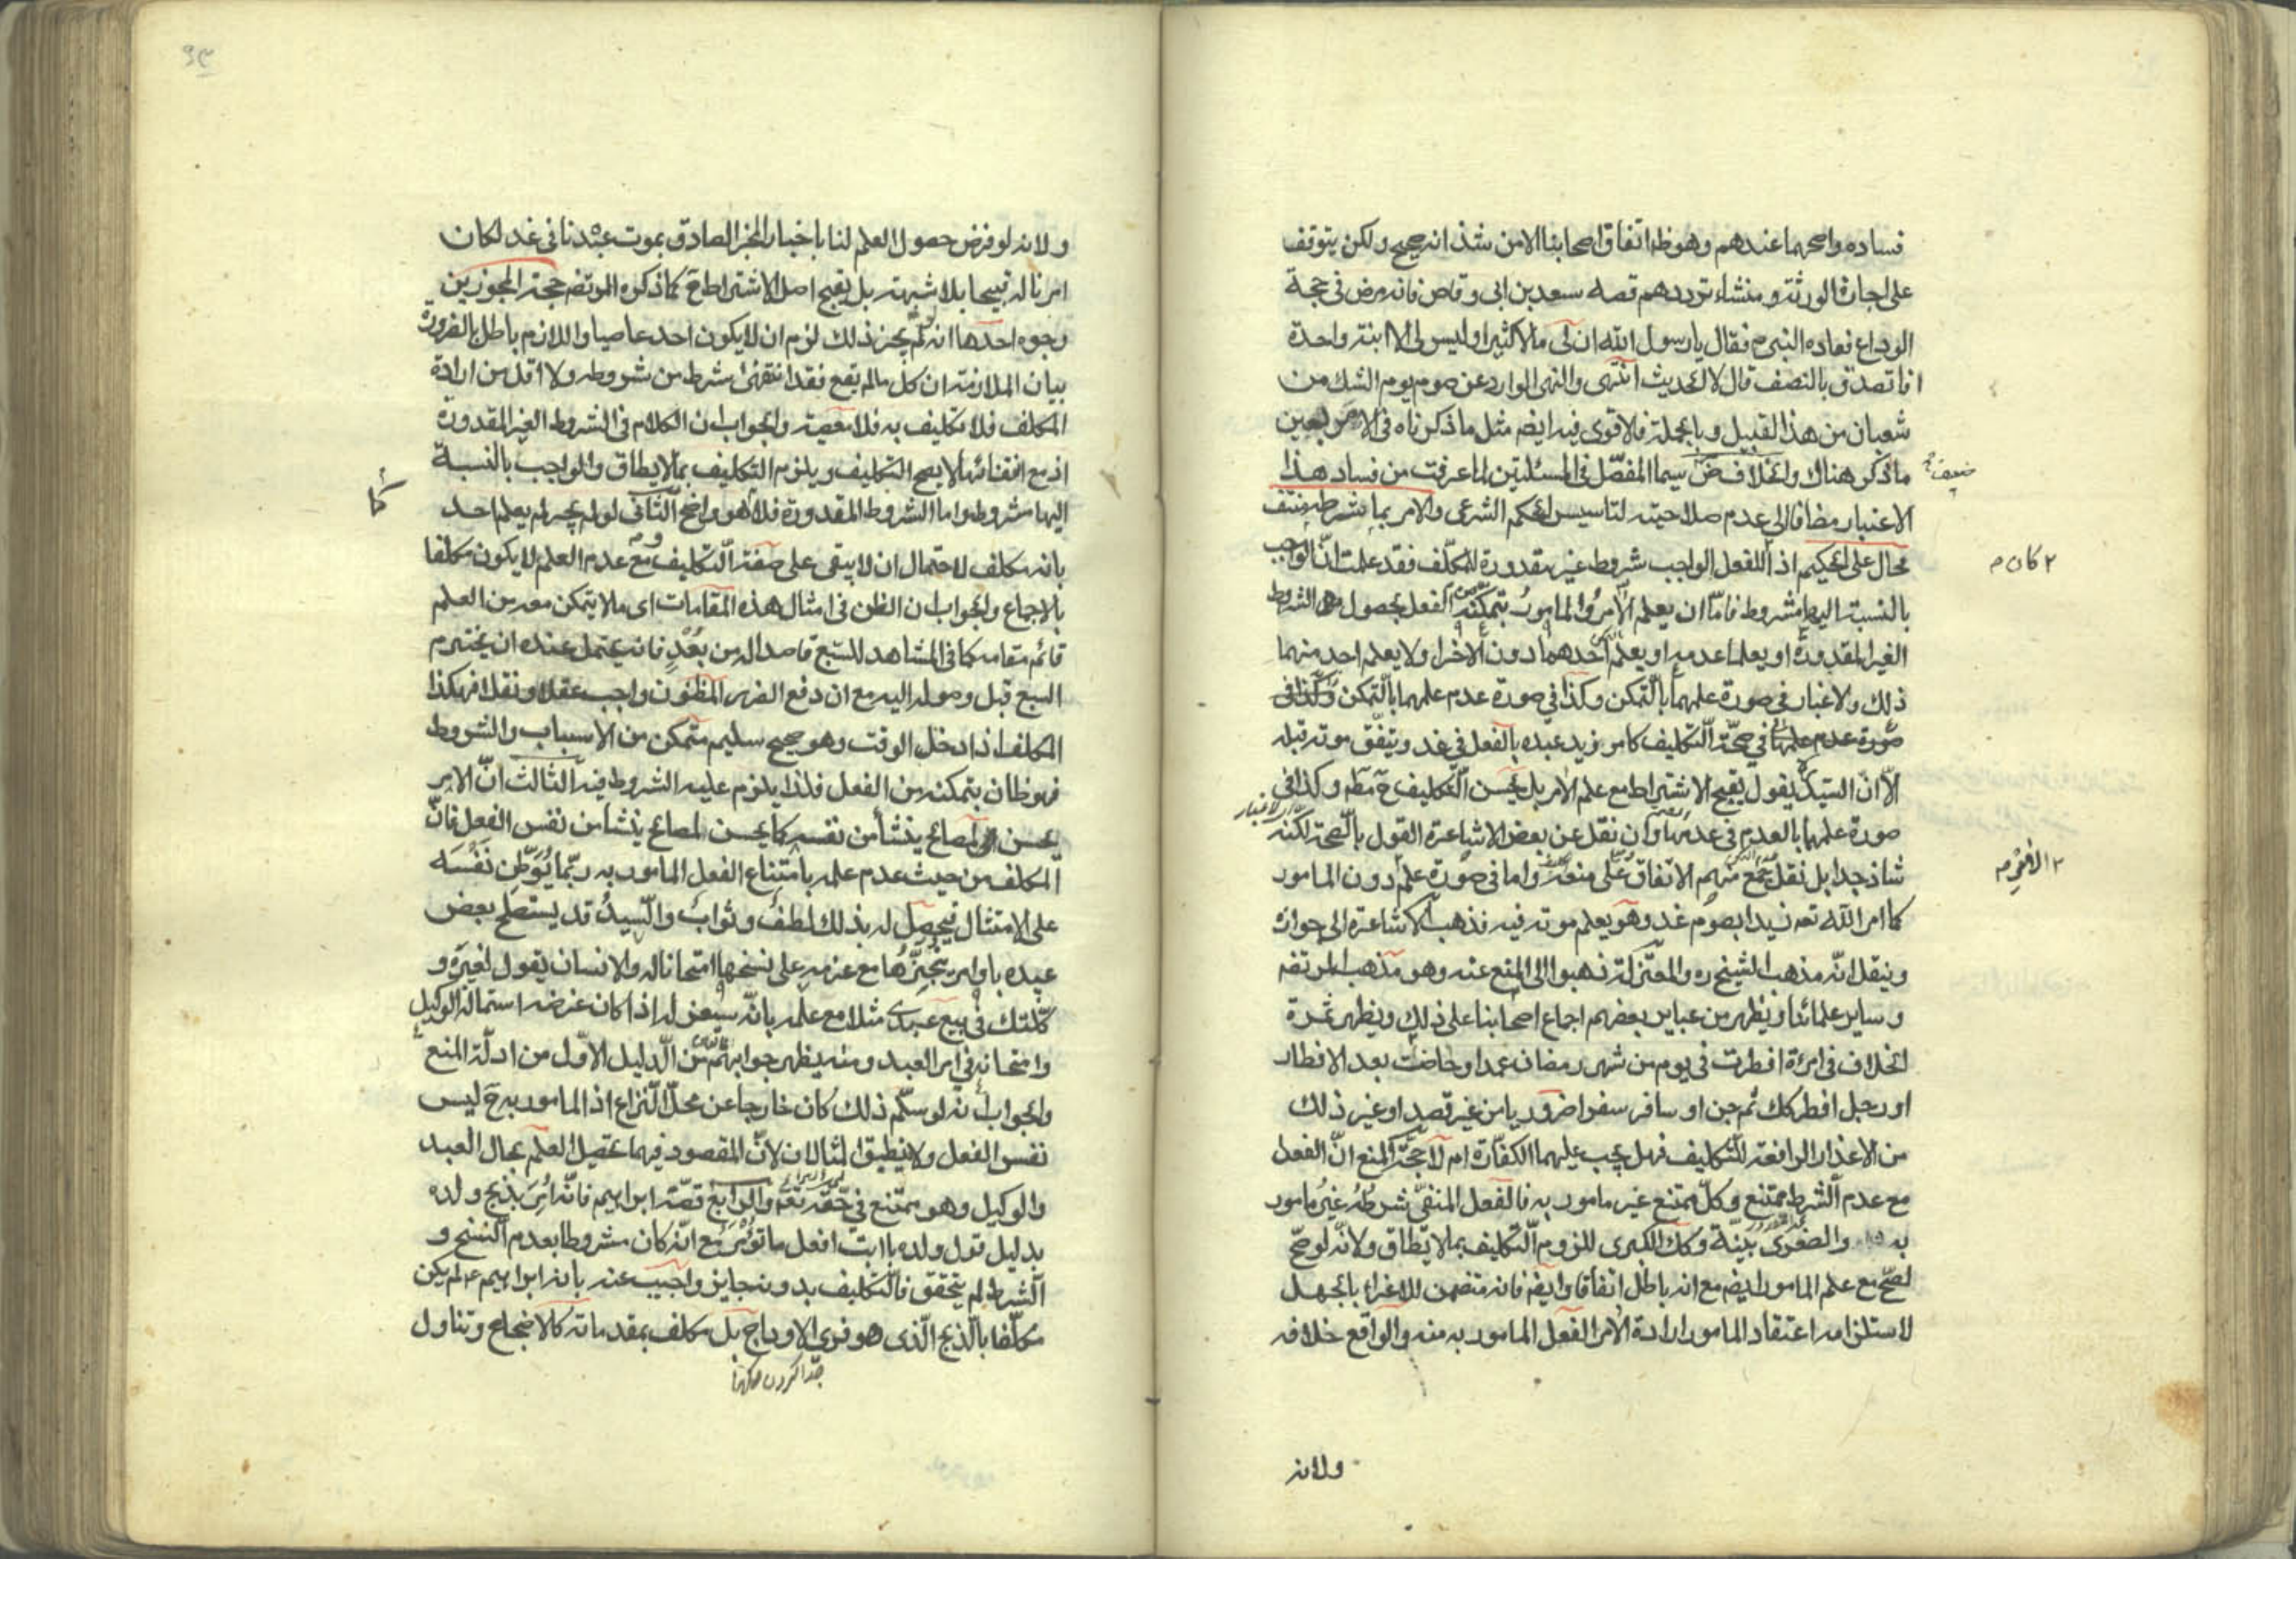 فساده واصحهما عندهم وهو ظ اتفاق اصحابنا الا من شذ انه صحيح ولكن يتوقف
على اجازة الورثة ومنشاء ترددهم قصه سعد بن ابى وقاص فانه مرض فى حجة
الوداع فعاده النبى م فقال يا رسول الله ان لى مالا كثيرا وليس لى الا ابنته واحدة
افاتصدق بالنصف قال لا الحديث انتهى والنهى الوارد عن صوم يوم الشك من
شعبان من هذا القبيل وبالجملة فالاقوى فيه ايضم مثل ما ذكرناه فى الامر بعين
ما ذكر هناك والخلاف ض سيما المفصّل فى المسئلتين لما عرفت من فساد هذا
ضعيف
الاعتبار مضافا الى عدم صلاحيته لتاسيس الحكم الشرعى والامر بما شرطه منتف
محال على الحكيم اذا للفعل الواجب شروط غير مقدورة للمكلّف فقد علمت انّ الواجب
٢ كان م
بالنسبة اليها مشروط فامّا ان يعلم الآمر والمامور بتمكنه من الفعل بحصول هذه الشروط
الغير المقدورة او يعلما عدمه او يعلم احدهما دون الاخر او لا يعلم احد منهما
ذلك ولا غبار فى صورة علمهما بالتمكن وكذا فى صورة عدم علمهما بالتمكن وكذا فى
صورة عدم علمهما فى صحّة التكليف كامر زيد عبده بالفعل فى غد ويتفق موته قبله
الّا انّ السيّد يقول بقبح الاشتراط مع علم الآمر بل يحسن التكليف ح مطم وكذا فى
صورة علمهما بالعدم فى عدمها وان نقل عن بعض الاشاعرة القول بالصحة لكنه
شاذ جدا بل نقل جمع منهم الاتفاق على منعه واما فى صورة علم دون المامور
٢ الآمر م
كما امر الله تعه زيدا بصوم غد وهو يعلم موته فيه فذهب الاشاعرة الى جوازه
وينقل انّه مذهب الشيخ ره والمعتزلة ذهبوا الى المنع عنه وهو مذهب المرتضه
وساير علمائنا ويظهر من عباير بعضهم اجماع اصحابنا على ذلك ويظهر ثمرة
الخلاف فى امرئة افطرت فى يوم من شهر رمضان عمدا وحاضت بعد الافطار
او رجل افطر كك ثم جن او سافر سفرا ضروريا من غير قصد او غير ذلك
من الاعذار الرافعة للتكليف فهل يجب عليهما الكفّارة ام لا حجّة المنع انّ الفعل
مع عدم الشرط ممتنع وكلّ ممتنع غير مامور به فالفعل المنفىّ شرطُه غيرُ مامور
به والصغرى بيّنة وكك الكبرى للزوم التكليف بما لا يطاق ولانّه لو صحّ
لصحّ مع علم المامور ايضم مع انه باطل اتفاقا وايضم فانه متضمن للاغراء بالجهل
لاستلزامه اعتقاد المامور ارادة الآمر الفعل المامور به منه والواقع خلافه
ولانه
٩٣
ولانه لو فرض حصول العلم لنا باخبار المخبر الصادق بموت عبدنا فى غد لكان
امرنا له قبيحا بلا شبهته بل يقبح اصل الاشتراط ح كما ذكره المرتضم حجة المجوزين
وجوه احدها انه لو لم يجز ذلك لزم ان لا يكون احد عاصيا واللازم باطل بالضرورة
بيان الملازمة ان كلّ ما لم يقع فقد انتفى شرط من شروطه ولا اقل من ارادة
المكلف فلا تكليف به فلا معصية والجواب ان الكلام فى الشروط الغير المقدورة
اذ مع انتفائها لا يصح التكليف ويلزم التكليف بما لا يطاق والواجب بالنسبة
اليها مشروط واما الشروط المقدورة فلا هو واضح الثانى لو لم يجز لم يعلم احد
كا
بانه مكلف لاحتمال ان لا يبقى على صفة التكليف ومع عدم العلم لا يكون مكلفا
بالاجماع والجواب ان الظن فى امثال هذه المقامات اى ما لا يتمكن معه من العلم
قائم مقامه كما فى المشاهد للسّبع قاصدا له من بُعْدٍ فانه يحتمل عنده ان يخترم
السبع قبل وصوله اليه مع ان دفع الضرر المظنون واجب عقلا ونقلا فهكذا
المكلف اذا دخل الوقت وهو صحيح سليم متمكن من الاسباب والشروط
فهو ظان بتمكنه من الفعل فلذا يلزم عليه الشروط فيه الثالث انّ الامر
يحسن لمصالح ينشأ من نفسه كما يحسن لمصالح ينشأ من نفس الفعل فانّ
المكلف من حيث عدم علمه بامتناع الفعل المامور به ربّما يُوَطِّن نَفْسَه
على الامتثال فيحصل له بذلك لطفٌ وثوابٌ والسّيدُ قد يستصلح بعض
عبيده باوامر ينجّزُها مع عزمه على نسخها امتحانا له والانسان يقول لغيره و
كّلتك فى بيع عبدى مثلا مع علمه بانّه سيعزله اذا كان غرضه استمالة الوكيل
وامتحانه فى امر العبد ومنه يظهر جوابهم من الدّليل الاوّل من ادلّة المنع
والجواب انّه لو سلّم ذلك كان خارجا عن محلّ النّزاع اذ المامور به ح ليس
نفس الفعل ولا ينطبق المثالان لانّ المقصود فيهما تحصيل العلم بحال العبد
والوكيل وهو ممتنع فى حقّه تعم والرابع قصّة ابراهيم فانّه اُمِرَ بذبح ولده
بدليل قول ولده يا ابت افعل ما تؤمر مع انّه كان مشروطا بعدم النّسخ و
الشرط لم يتحقق فالتكليف بدونه جايز واجيب عنه بانه ابراهيم ع لم يكن
مكلّفا بالذبح الّذى هو فرى الاوداج بل مكلف بمقدماته كالاضجاع وتناول
جدا كردن رگها